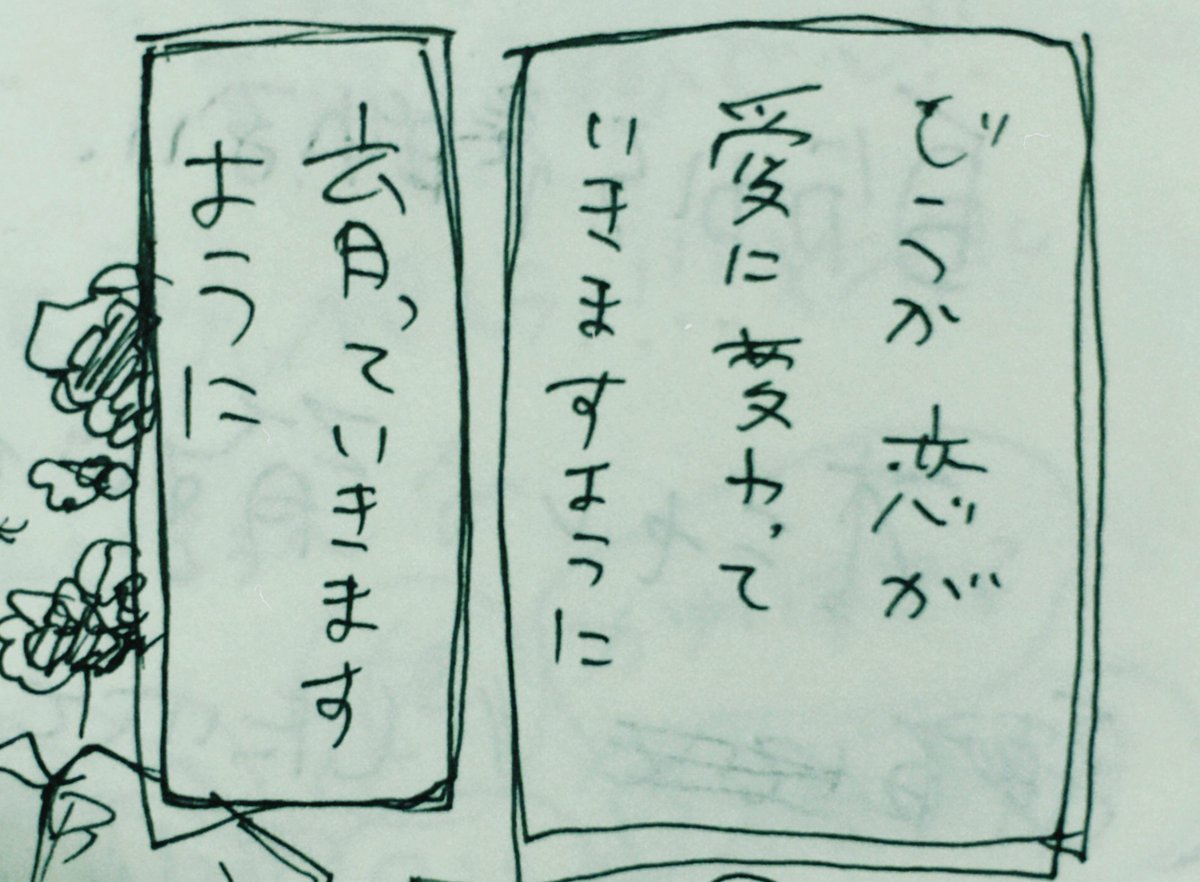 どうか 恋が
愛に変わって
いきますように
育っていきます
ように